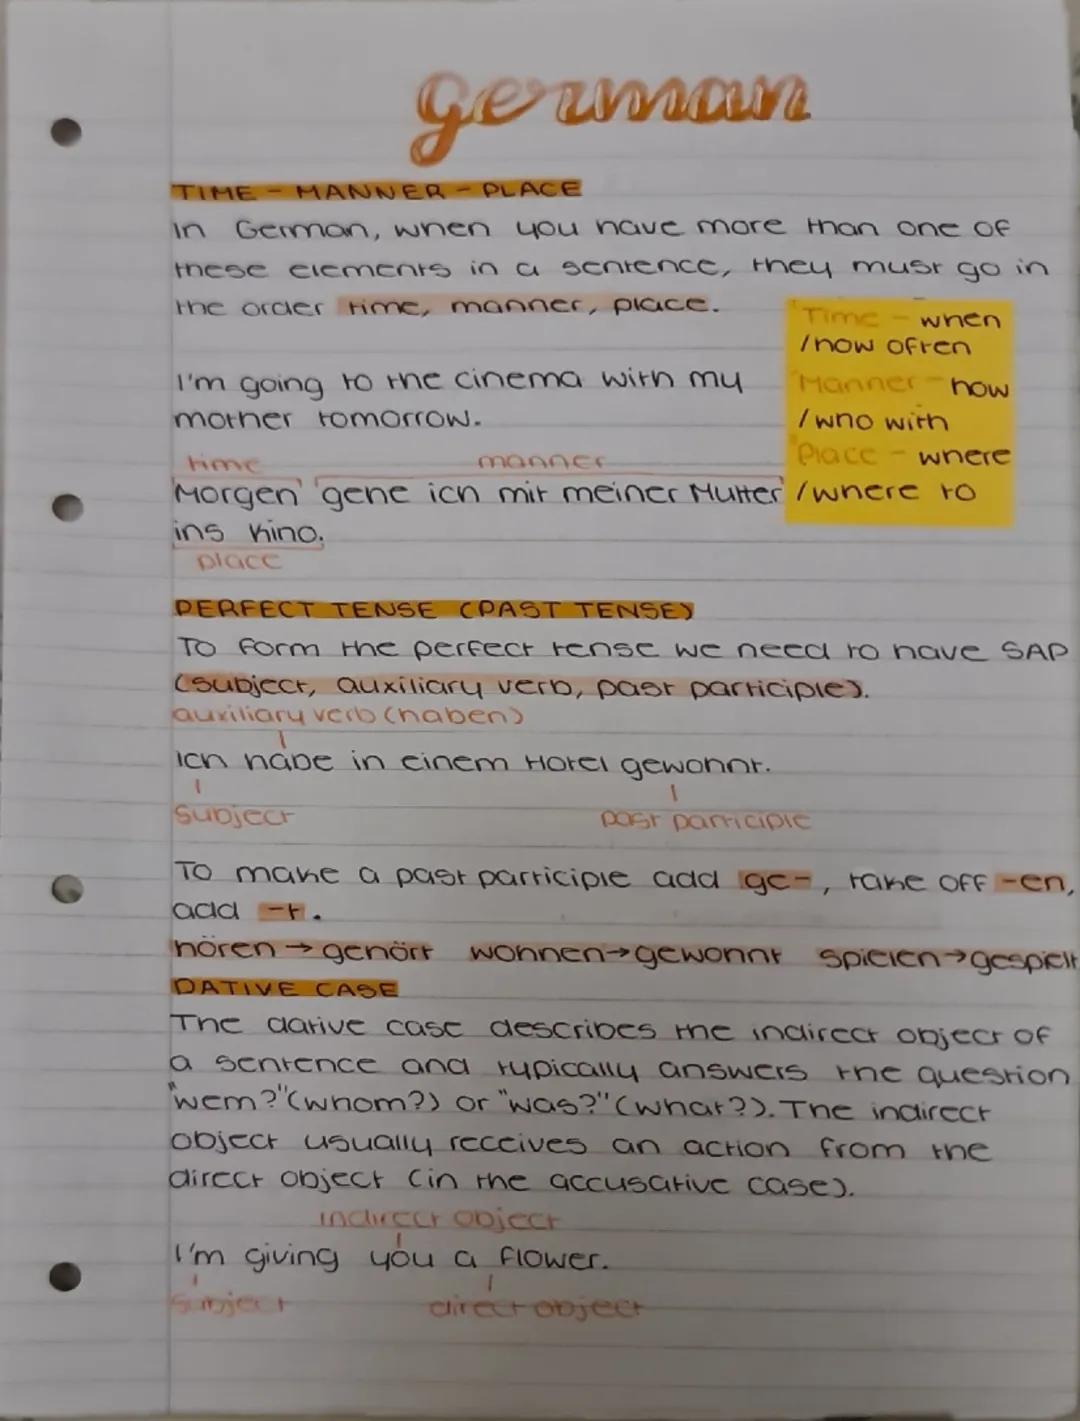 german
TIME - MANNER - PLACE
In German, when you have more than one of
these elements in a sentence, they must go in
the order time, manner, place.
Time - when
/how often
Manner - how
/who with
Place - where
/where to
I'm going to the cinema with my
mother tomorrow.
time manner
Morgen gehe ich mit meiner Mutter
ins Kino.
place
PERFECT TENSE (PAST TENSE)
To form the perfect tense we need to have SAP
(subject, auxiliary verb, past participle).
auxiliary verb (haben)
Ich habe in einem Hotel gewohnt.
subject past participle
To make a past participle add ge-, take off -en,
add -t.
hören → gehört wohnen → gewohnt spielen → gespielt
DATIVE CASE
The dative case describes the indirect object of
a sentence and typically answers the question
"wem?" (whom?) or "was?" (what?). The indirect
object usually receives an action from the
direct object (in the accusative case).
indirect object
I'm giving you a flower.
subject direct object